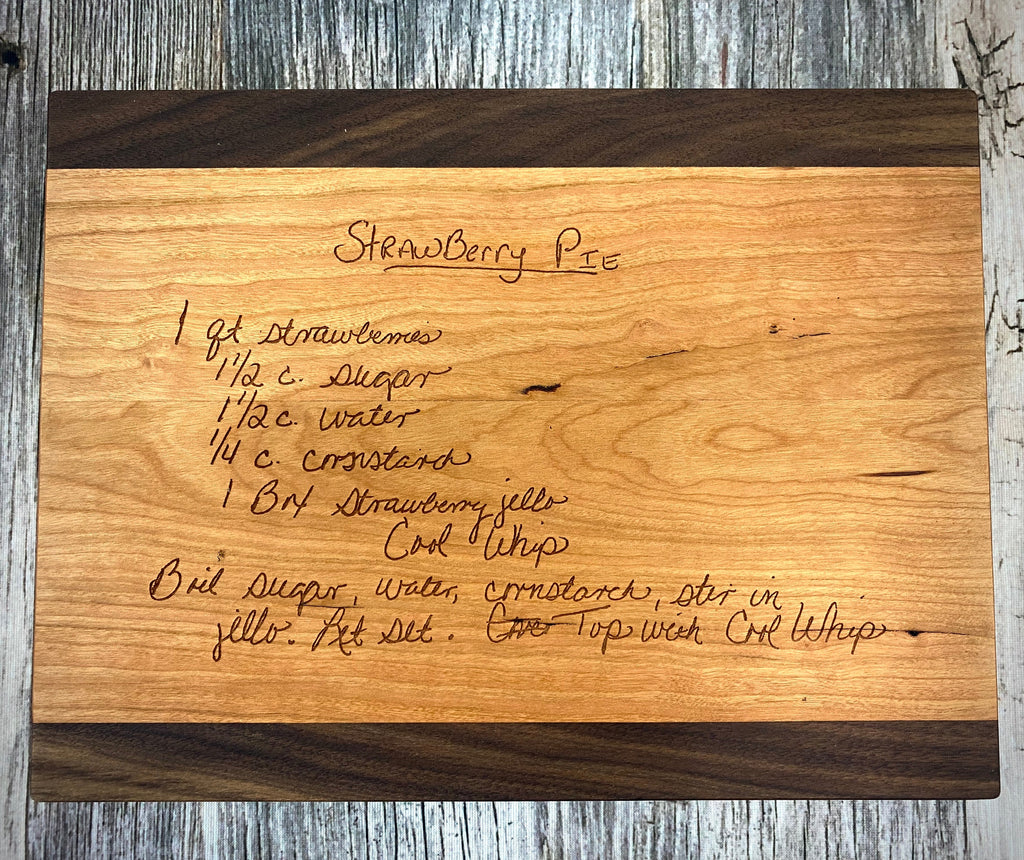 Strawberry Pie
1 qt strawberries
1 1/2 c. sugar
1 1/2 c. water
1/4 c. cornstarch
1 Box strawberry jello
Cool Whip
Boil sugar, water, cornstarch, stir in
jello. Let set. Cover Top with Cool Whip